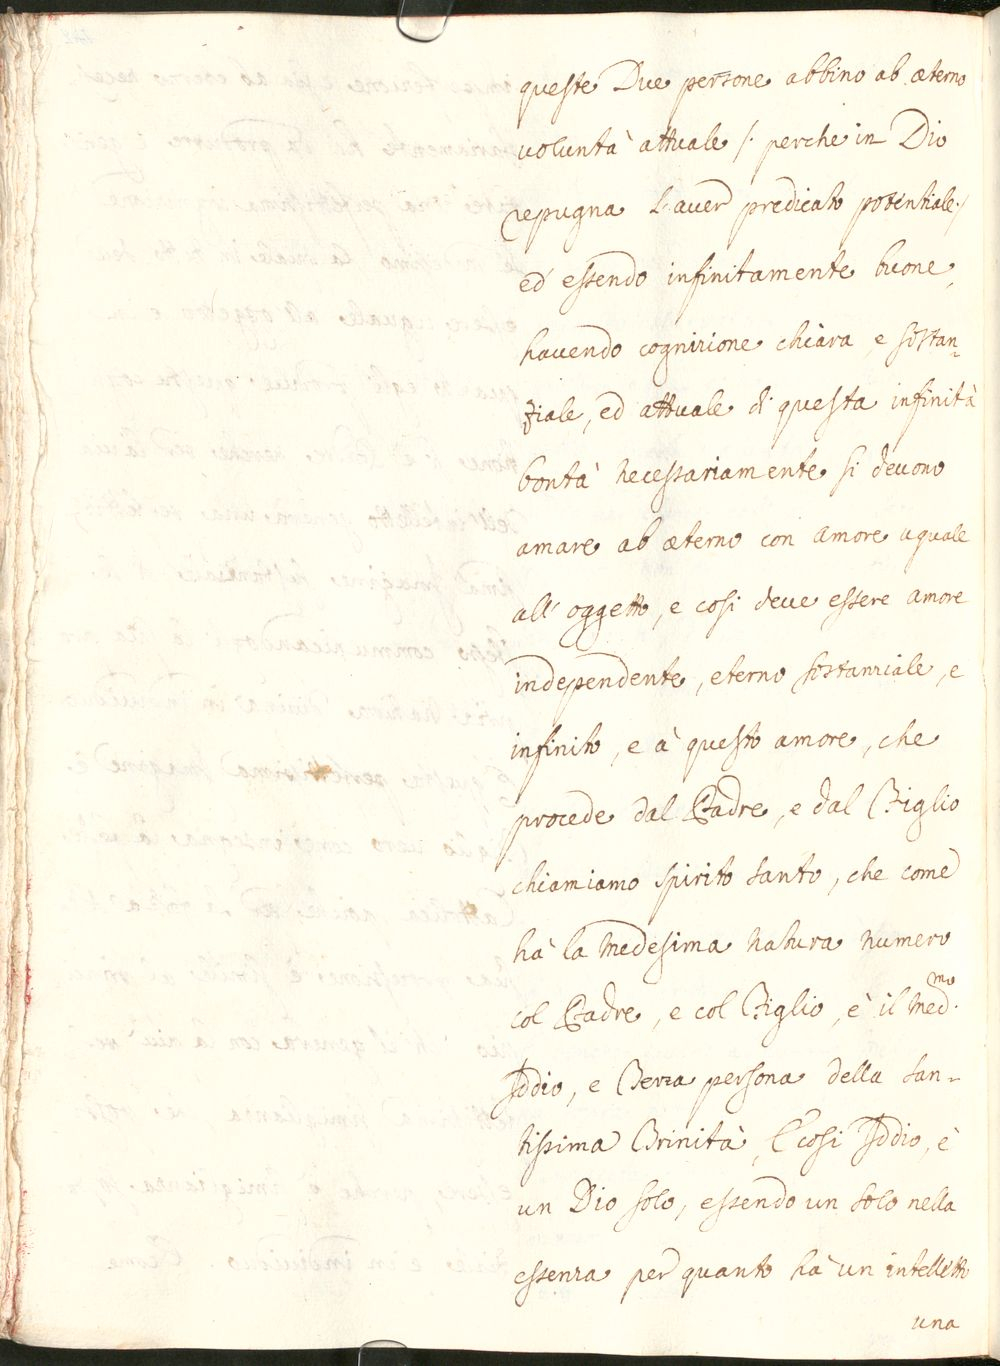 queste Due persone abbino ab æterno
uoluntà attuale /: perche in Dio
repugna l'auer predicato potentiale :/
ed essendo infinitamente buone,
hauendo cognizione chiara, e sostan-
ziale, ed attuale di questa infinità
bontà necessariamente si deuono
amare ab æterno con amore uguale
all' oggetto, e cosi deue essere amore
independente, eterno sostanziale, e
infinito, e à questo amore, che
procede dal Padre, e dal Figlio
chiamiamo spirito santo, che come
hà la medesima natura numero
col Padre, e col Figlio, è il med.mo
Iddio, e Terza persona della san-
tissima Trinità, E cosi Iddio, è
un Dio solo, essendo un solo nella
essenza per quanto hà un intelletto
una